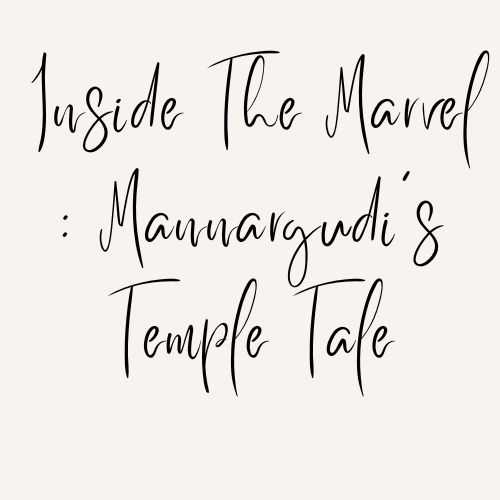 Inside The Marvel
: Mannargudi's
Temple Tale